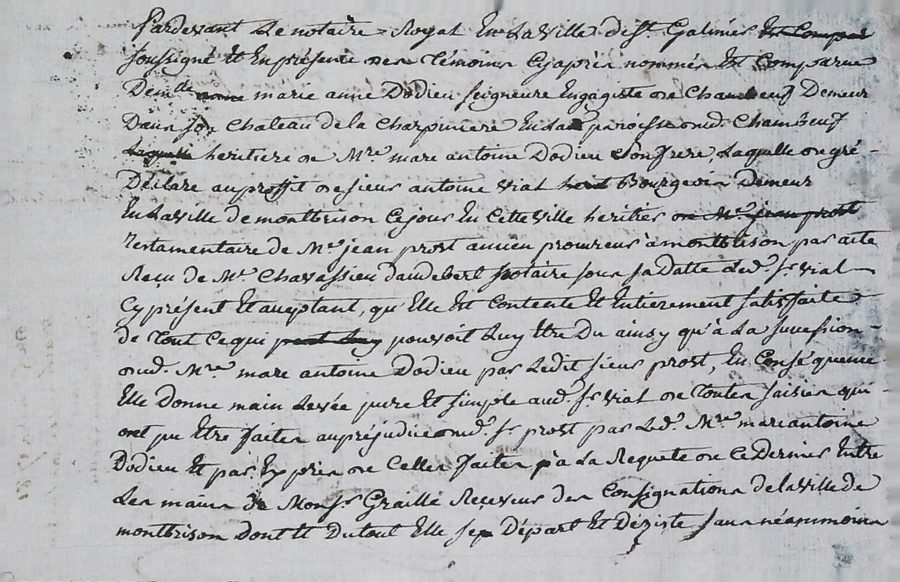 Pardevant Le notaire Royal En La Ville de St. Galmier Est Compar
soussigné Et En présence des témoins Cyaprès nommés Est Comparue
Demlle anne marie anne Dodieu seigneure Engagiste de Chambeuf Demeur
Dans son Chateau de La Charpiniere En La paroisse dud. Chambeuf
Laquelle heritiere de Mre. marc antoine Dodieu son frere, Laquelle de gré
Déclare au proffit de sieur antoine Vial Bourgeois Demeur
En La Ville de montbrison Ce jour En Cette Ville heritier de Mr. jean prost
Testamentaire de Mr. jean prost ancien procureur à montbrison par acte
Reçu de Me. Chavassieu Daudebert Notaire sous sa datte Led. Sr. Vial
Cy présent Et acceptant, qu'Elle Est Contente Et Entièrement satisfaite
de Tout Ce qui peut Luy pouvoit Luy Etre Du ainsy qu'à La succession
dud. Mre. marc antoine Dodieu par Ledit sieur prost, En Conséquence
Elle Donne main Levée pure Et simple aud. Sr. Vial de Toutes saisies qui
ont pu Etre faites au préjudice dud. Sr. prost par Led. Mre. marc antoine
Dodieu Et par Exprès de Celles faites à La Requete de Ce Dernier Entre
Les mains de Monsr. Graille Receveur des Consignations de La Ville de
montbrison Dont Et Du tout Elle se Départ Et Déziste sans néanmoins